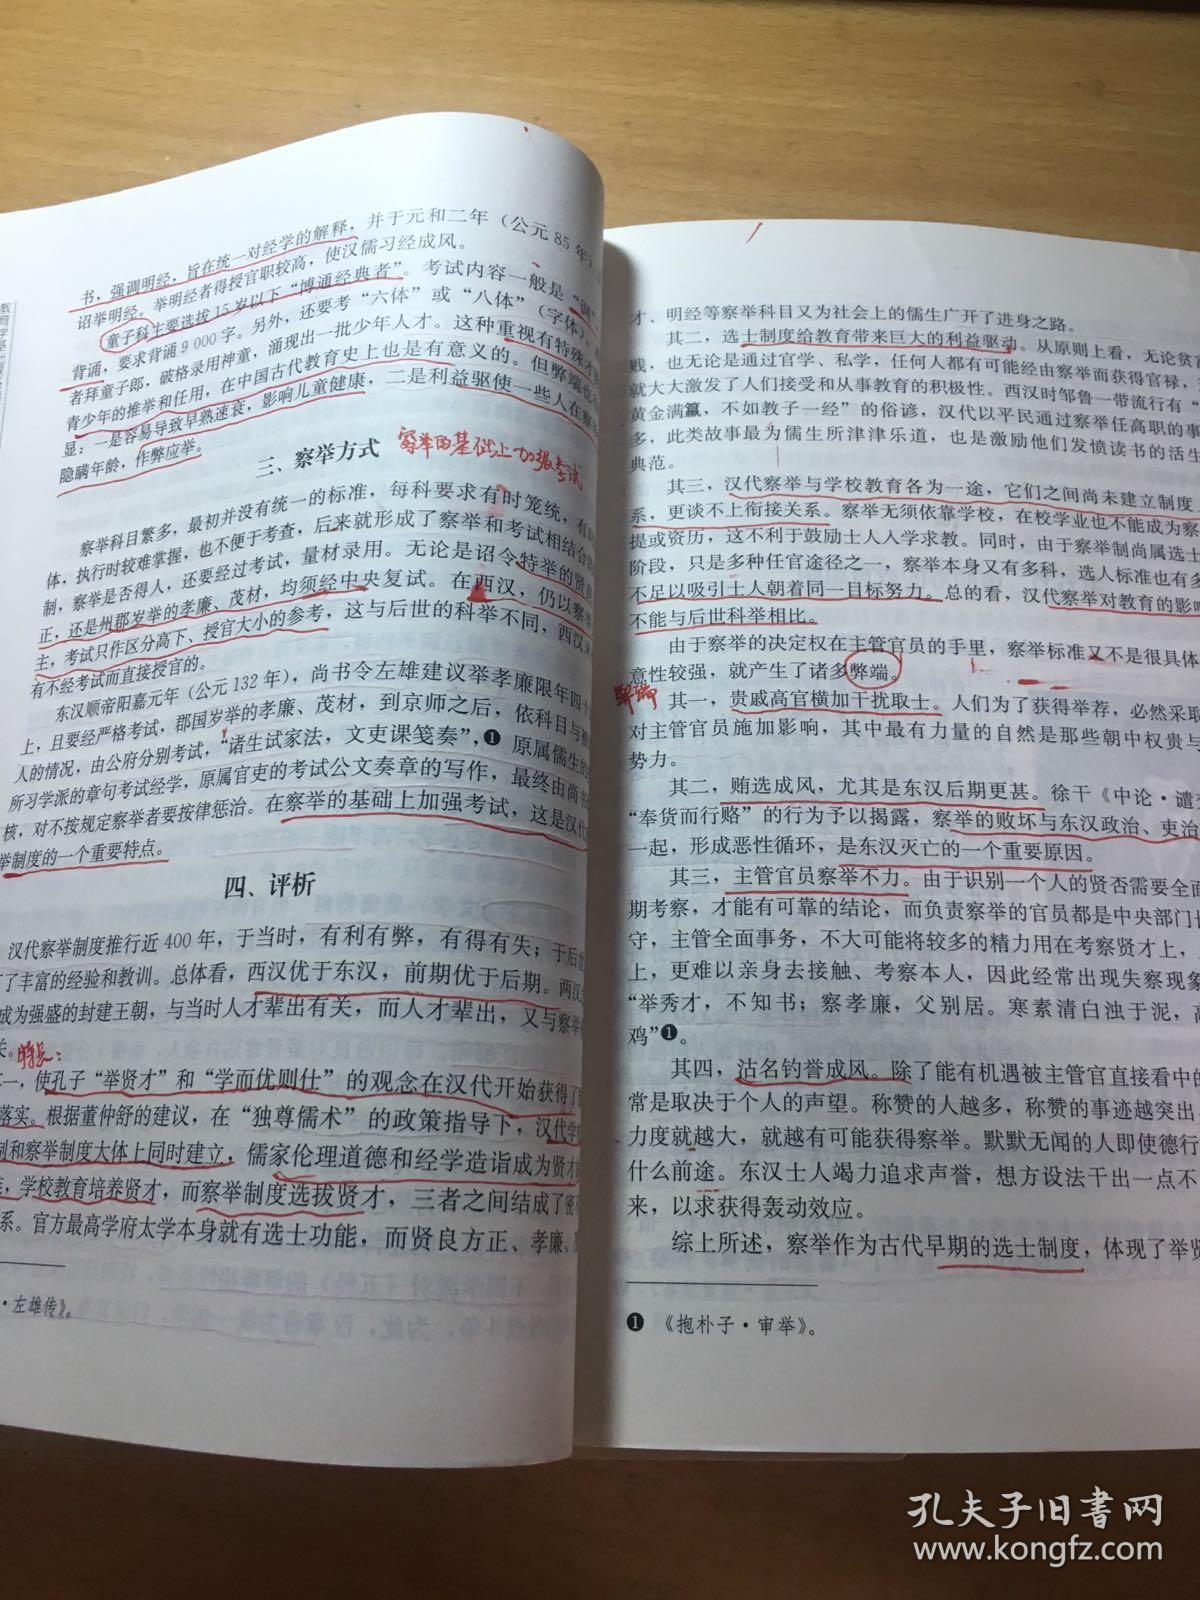 书，强调明经，旨在统一对经学的解释，并于元和二年（公元85年）
诏举明经。举明经者得授官职较高，使汉儒习经成风。
童子科主要选拔15岁以下“博通经典者”。考试内容一般是“讽
背诵，要求背诵9000字。另外，还要考“六体”或“八体”（字体）。
者拜童子郎，破格录用神童，涌现出一批少年人才。这种重视有特殊才
青少年的推举和任用，在中国古代教育史上也是有意义的。但弊端也
显：一是容易导致早熟速衰，影响儿童健康，二是利益驱使一些人在察
隐瞒年龄，作弊应举。
三、察举方式 察举的基础上加强考试
察举科目繁多，最初并没有统一的标准，每科要求有时笼统，有
体，执行时较难掌握，也不便于考查，后来就形成了察举和考试相结合的
制，察举是否得人，还要经过考试，量材录用。无论是诏令特举的贤
正，还是州郡岁举的孝廉、茂材，均须经中央复试。在西汉，仍以察举
主，考试只作区分高下、授官大小的参考，这与后世的科举不同，西汉
有不经考试而直接授官的。
东汉顺帝阳嘉元年（公元132年），尚书令左雄建议举孝廉限年四十
上，且要经严格考试，郡国岁举的孝廉、茂材，到京师之后，依科目与
人的情况，由公府分别考试，“诸生试家法，文吏课笺奏”，❶原属儒生的
所习学派的章句考试经学，原属官吏的考试公文奏章的写作，最终由尚书
核，对不按规定察举者要按律惩治。在察举的基础上加强考试，这是汉代
举制度的一个重要特点。
四、评析
汉代察举制度推行近400年，于当时，有利有弊，有得有失；于后世
了丰富的经验和教训。总体看，西汉优于东汉，前期优于后期。两汉
成为强盛的封建王朝，与当时人才辈出有关，而人才辈出，又与察举
关。
一，使孔子“举贤才”和“学而优则仕”的观念在汉代开始获得了
落实。根据董仲舒的建议，在“独尊儒术”的政策指导下，汉代学
制和察举制度大体上同时建立，儒家伦理道德和经学造诣成为贤才
，学校教育培养贤才，而察举制度选拔贤才，三者之间结成了密
系。官方最高学府太学本身就有选士功能，而贤良方正、孝廉、
·左雄传》。
才、明经等察举科目又为社会上的儒生广开了进身之路。
其二，选士制度给教育带来巨大的利益驱动。从原则上看，无论贫富
贱，也无论是通过官学、私学，任何人都有可能经由察举而获得官禄，
就大大激发了人们接受和从事教育的积极性。西汉时邹鲁一带流行有“
黄金满籝，不如教子一经”的俗谚，汉代以平民通过察举任高职的事
多，此类故事最为儒生所津津乐道，也是激励他们发愤读书的活生
典范。
其三，汉代察举与学校教育各为一途，它们之间尚未建立制度
系，更谈不上衔接关系。察举无须依靠学校，在校学业也不能成为察
提或资历，这不利于鼓励士人入学求教。同时，由于察举制尚属选士
阶段，只是多种任官途径之一，察举本身又有多科，选人标准也有多
不足以吸引士人朝着同一目标努力。总的看，汉代察举对教育的影
不能与后世科举相比。
由于察举的决定权在主管官员的手里，察举标准又不是很具体
意性较强，就产生了诸多弊端。
弊端
其一，贵戚高官横加干扰取士。人们为了获得举荐，必然采取
对主管官员施加影响，其中最有力量的自然是那些朝中权贵与
势力。
其二，贿选成风，尤其是东汉后期更甚。徐干《中论·谴
“奉货而行赂”的行为予以揭露，察举的败坏与东汉政治、吏治
一起，形成恶性循环，是东汉灭亡的一个重要原因。
其三，主管官员察举不力。由于识别一个人的贤否需要全面
期考察，才能有可靠的结论，而负责察举的官员都是中央部门
守，主管全面事务，不大可能将较多的精力用在考察贤才上，
上，更难以亲身去接触、考察本人，因此经常出现失察现象
“举秀才，不知书；察孝廉，父别居。寒素清白浊于泥，高
鸡”❶。
其四，沽名钓誉成风。除了能有机遇被主管官直接看中的
常是取决于个人的声望。称赞的人越多，称赞的事迹越突出
力度就越大，就越有可能获得察举。默默无闻的人即使德行
什么前途。东汉士人竭力追求声誉，想方设法干出一点不
来，以求获得轰动效应。
综上所述，察举作为古代早期的选士制度，体现了举贤
❶ 《抱朴子·审举》。
孔夫子旧书网
www.kongfz.com